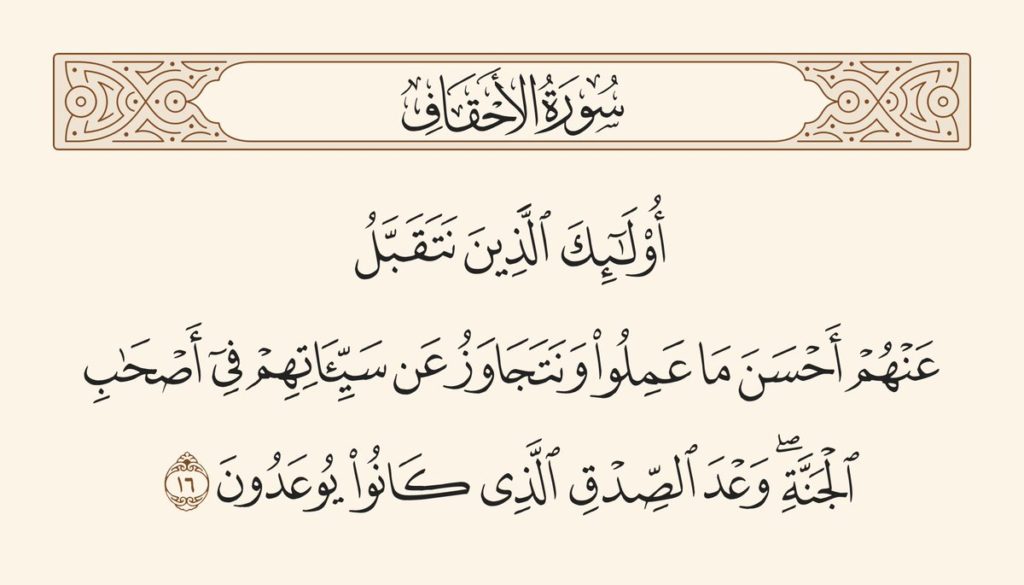 سُورَةُ الأَحْقَافِ
أُوْلَٰٓئِكَ ٱلَّذِينَ نَتَقَبَّلُ
عَنْهُمْ أَحْسَنَ مَا عَمِلُوا۟ وَنَتَجَاوَزُ عَن سَيِّـَٔاتِهِمْ فِىٓ أَصْحَٰبِ
ٱلْجَنَّةِ ۖ وَعْدَ ٱلصِّدْقِ ٱلَّذِى كَانُوا۟ يُوعَدُونَ ١٦